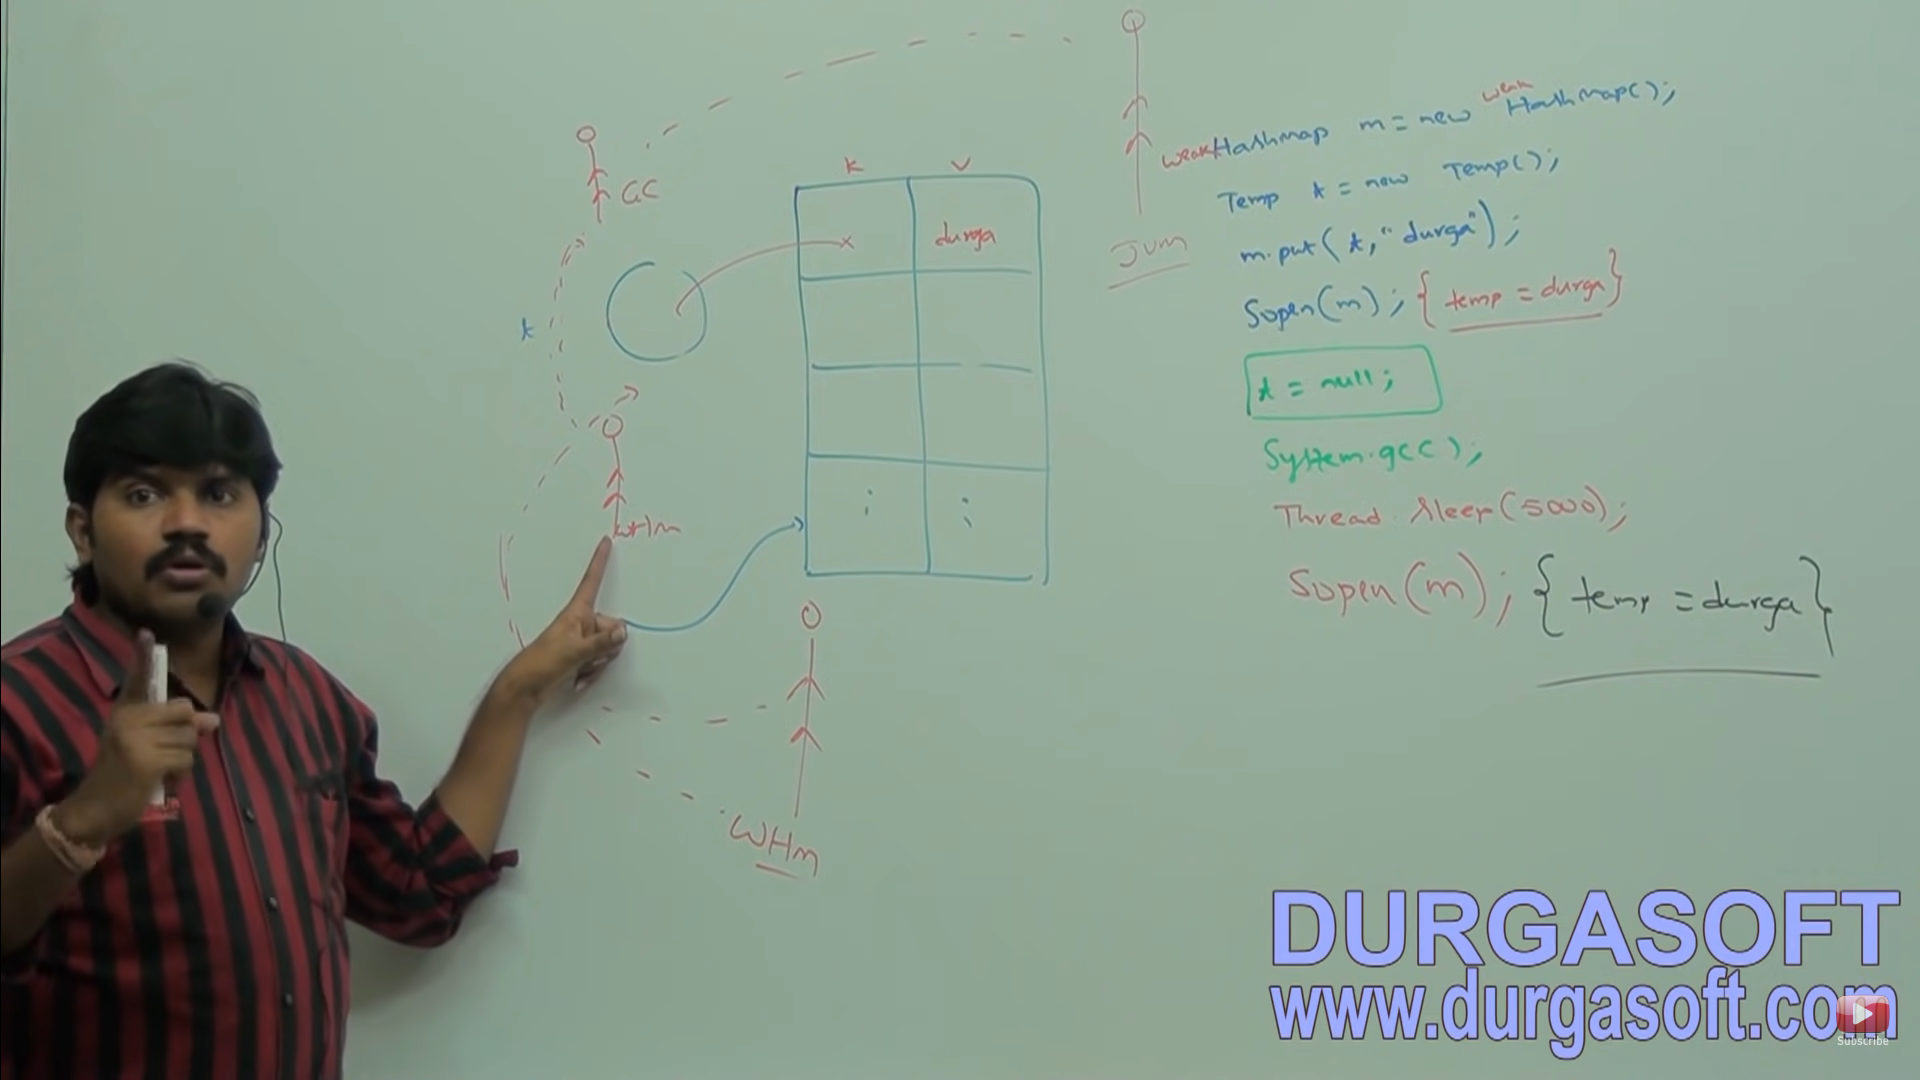 GC
t
K V
durga
WHM
WHM
JVM
weak
weakHashmap m = new Hashmap();
Temp t = new Temp();
m.put(t, "durga");
Sopln(m); {temp = durga}
t = null;
System.gc();
Thread.sleep(5000);
Sopln(m); {temp = durga}
DURGASOFT
www.durgasoft.com
Subscribe